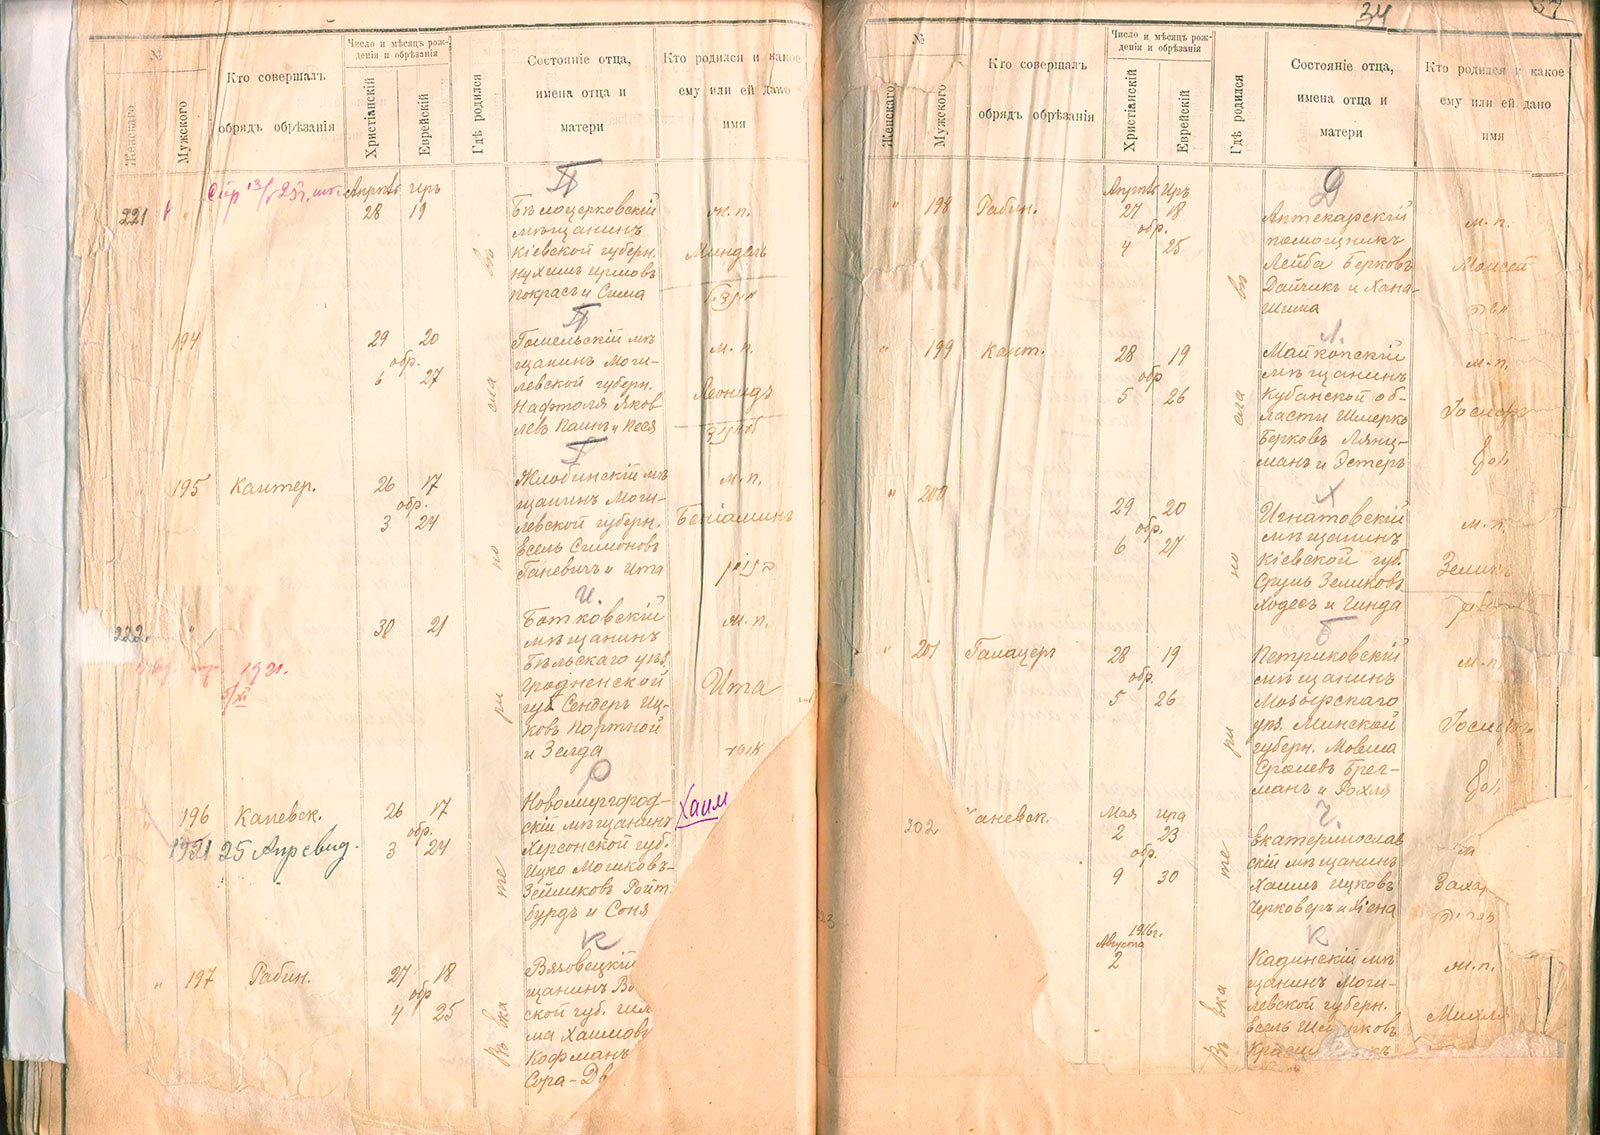 №
Женскаго
Мужского
Кто совершалъ
обрядъ обрѣзанія
Число и мѣсяцъ рож-
денія и обрѣзанія
Христіанскій
Еврейскій
Гдѣ родился
Состояніе отца,
имена отца и
матери
Кто родился и какое
ему или ей дано
имя
221
28 19
Бѣлоцерковскій
мѣщанинъ
Кіевской губерн.
Нухимъ
Покрасъ и Сима
ж. п.
Миндель
194
29 20
обр.
6 27
Гомельскій мѣ
щанинъ Моги-
левской губерн.
Нафтоля Яков
левъ Каинъ и Песя
м. п.
Леонидъ
195 Кантер.
26 17
обр.
3 24
Жлобинскій мѣ
щанинъ Моги-
левской губерн.
Есель Симоновъ
Ганевичъ и Ита
м. п.
Беніаминъ
222
1921.
5/XI
30 21
И.
Ботковскій
мѣщанинъ
Бѣльскаго уѣз.
Гродненской
губ. Сендеръ Иц-
ковъ Портной
и Зелда
ж. п.
Ита
196 Каневск.
1921 25 Апр
26 17
обр.
3 24
О
Новомиргород-
скій мѣщанинъ
Херсонской губ.
Ицко Мошковъ-
Зейликовъ Ройт
бурдъ и Соня
Хаим
" 197 Рабин.
27 18
обр
4 25
К
Вязовецкій
щанинъ Во
ской губ. Шл
ма Хаимовъ
Кофманъ
Сора-Дв
34
№
Женскаго
Мужского
Кто совершалъ
обрядъ обрѣзанія
Число и мѣсяцъ рож-
денія и обрѣзанія
Христіанскій
Еврейскій
Гдѣ родился
Состояніе отца,
имена отца и
матери
Кто родился и какое
ему или ей дано
имя
" 198 Рабин.
Апрѣль Иръ
27 18
обр.
4 25
Д
Аптекарскій
помощникъ
Лейба Берковъ
Дайчикъ и Хана-
Шима
м. п.
Моисей
משה
" 199 Кант.
28 19
обр
5 26
Л.
Майкопскій
мѣщанинъ
Кубанской об-
ласти Шмерко
Берковъ Лянц-
манъ и Эстеръ
м. п.
Іосифъ
" 200
29 20
обр.
6 27
Х
Игнатовскій
мѣщанинъ
Кіевской губ.
Сруль Зеликовъ
Ходосъ и Гинда
м. п.
Зеликъ
" 201
28 19
обр.
5 26
Б
Петриковскій
мѣщанинъ
Мозырскаго
уѣз. Минской
губерн. Мовша
Сролевъ Брег-
манъ и Рохля
м. п.
Іосифъ
202
Каневск.
Мая Ира
2 23
обр.
9 30
Ч.
Екатеринослав
скій мѣщанинъ
Хаимъ Ицковъ
Черковеръ и Хіена
Заха
זכריה
1916г.
Августа
2
К
Кадинскій мѣ
щанинъ Моги-
левской губерн.
Есель
ж. п.